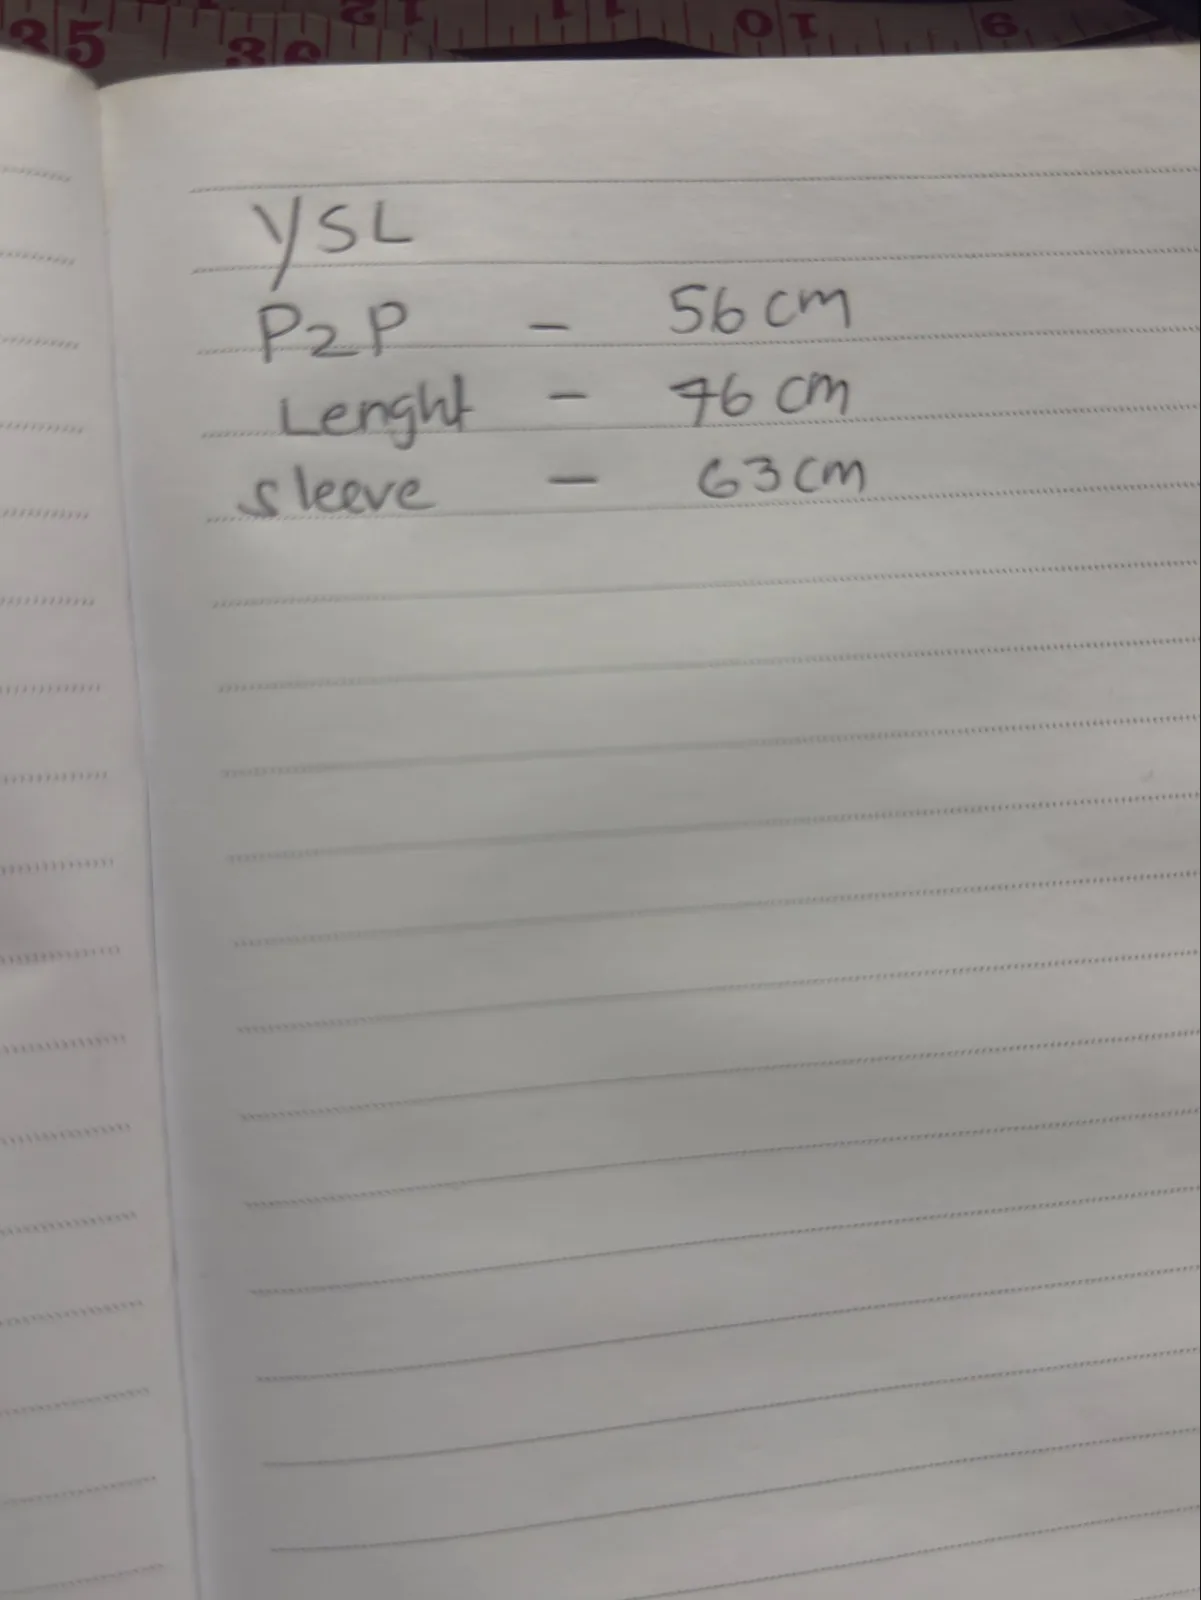 35 36 12 11 10 9
YSL
P2P - 56 cm
Lenght - 76 cm
Sleeve - 63 cm